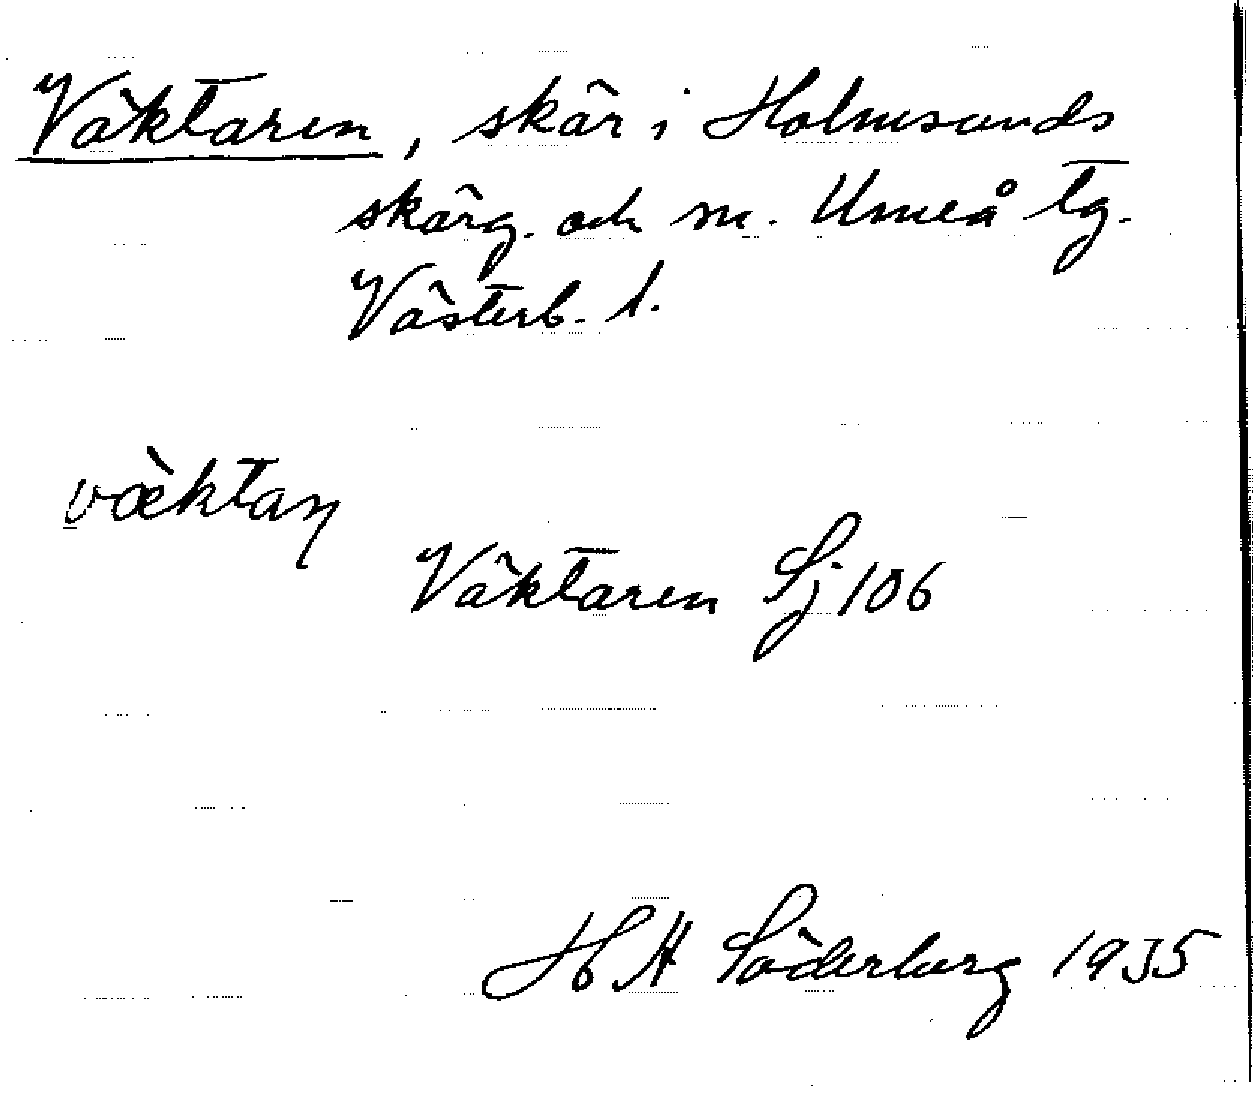 Väktaren, skär i Holmsunds
skärg. och m. Umeå tg.
Västerb. l.
væ̀ktaɳ
Väktaren Sj 106
H H Söderberg 1935